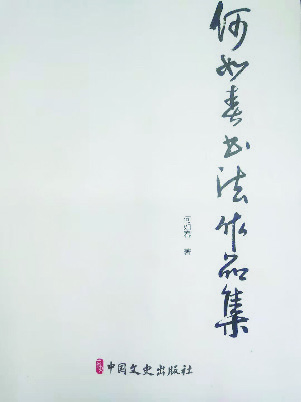 何如春书法作品集
何如春 著
中国文史出版社